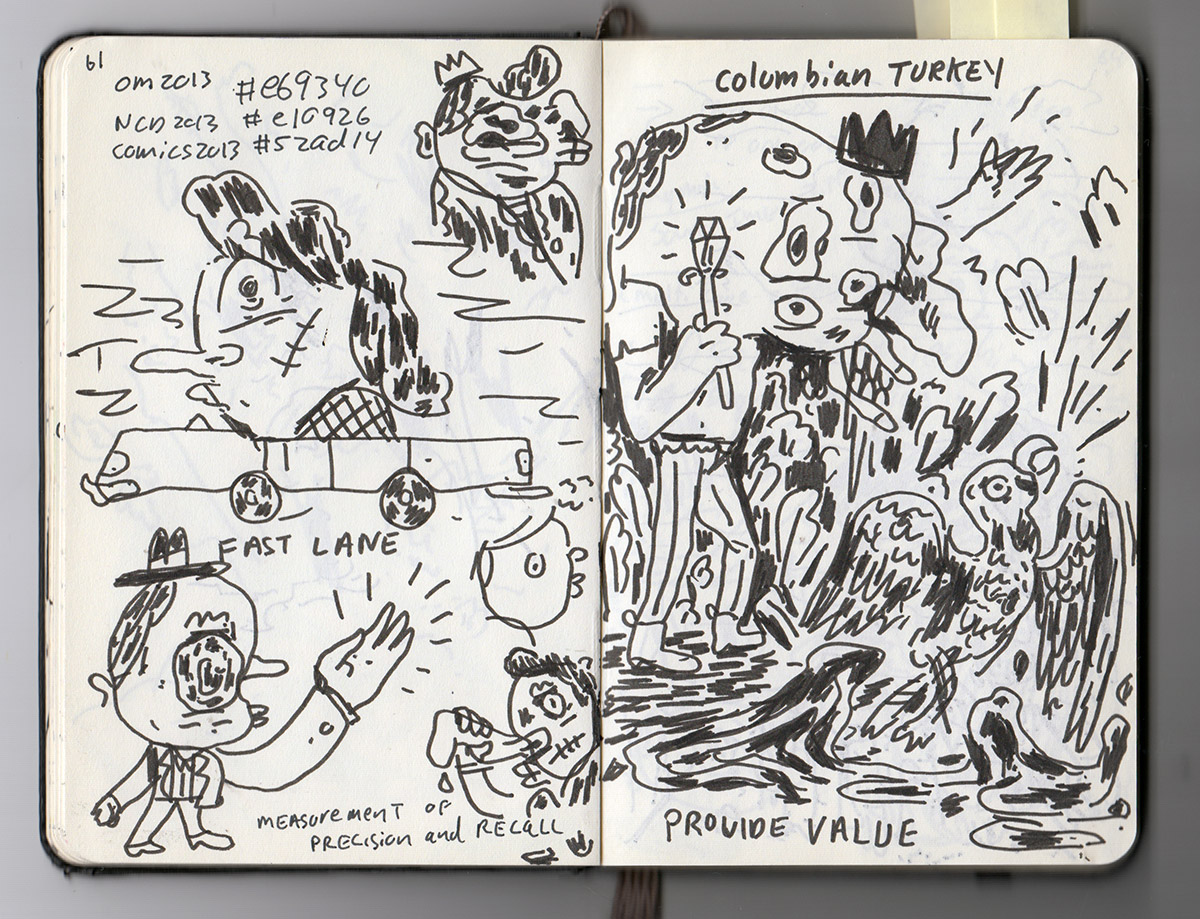 61
om2013 #e6934c
NCD2013 #e1a926
comics2013 #52ad14
FAST LANE
MEASUREMENT OF
PRECISION and RECALL
columbian TURKEY
PROVIDE VALUE